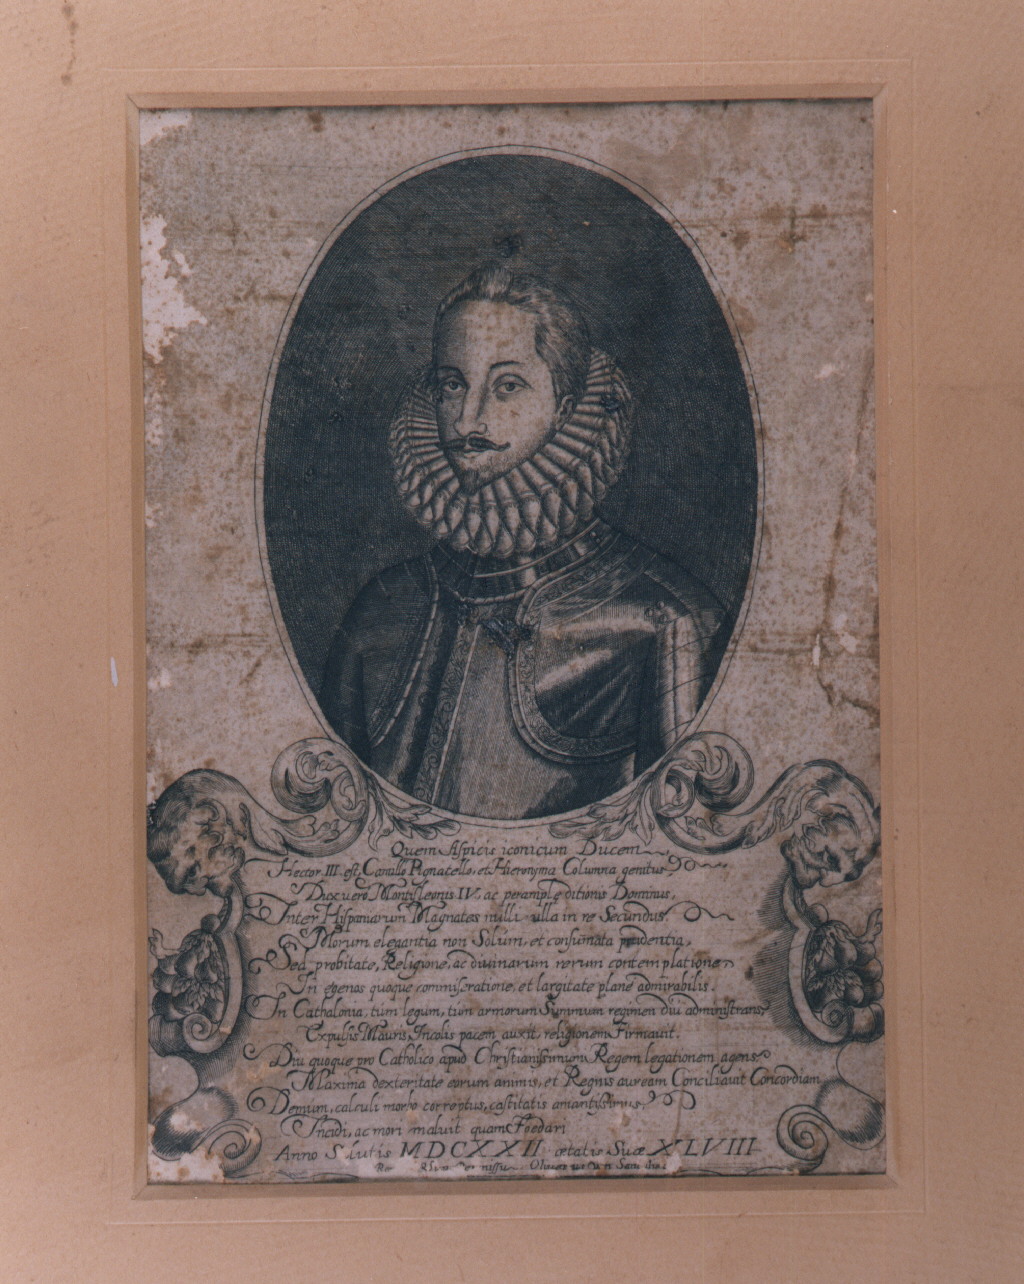 Quem Aspicis iconicum Ducem
Hector III. est, Camillo Pignatello, et Hieronyma Columna genitus
Dux vero Montisleonis IV. ac peramplę ditionis Dominus,
Inter Hispaniarum Magnates nulli ulla in re Secundus.
Morum elegantia non Solum, et consum̃ata prudentia,
Sed probitate, Religione, ac diuinarum rerum contemplatione
In egenos quoque commiseratione, et largitate plane admirabilis.
In Cathalonia, tum legum, tum armorum Summum regimen diu administrans,
Expulsis Mauris, Incolis pacem auxit, religionem Firmauit.
Diu quoque pro Catholico apud Christianissimum Regem legationem agens
Maxima dexteritate eorum animis, et Regnis auream Conciliauit Concordiam
Demum, calculi morbo correptus, castitatis amantissimus,
Incidi, ac mori maluit quam Foedari
Anno Salutis MDCXXII ætatis Suæ XLVIII